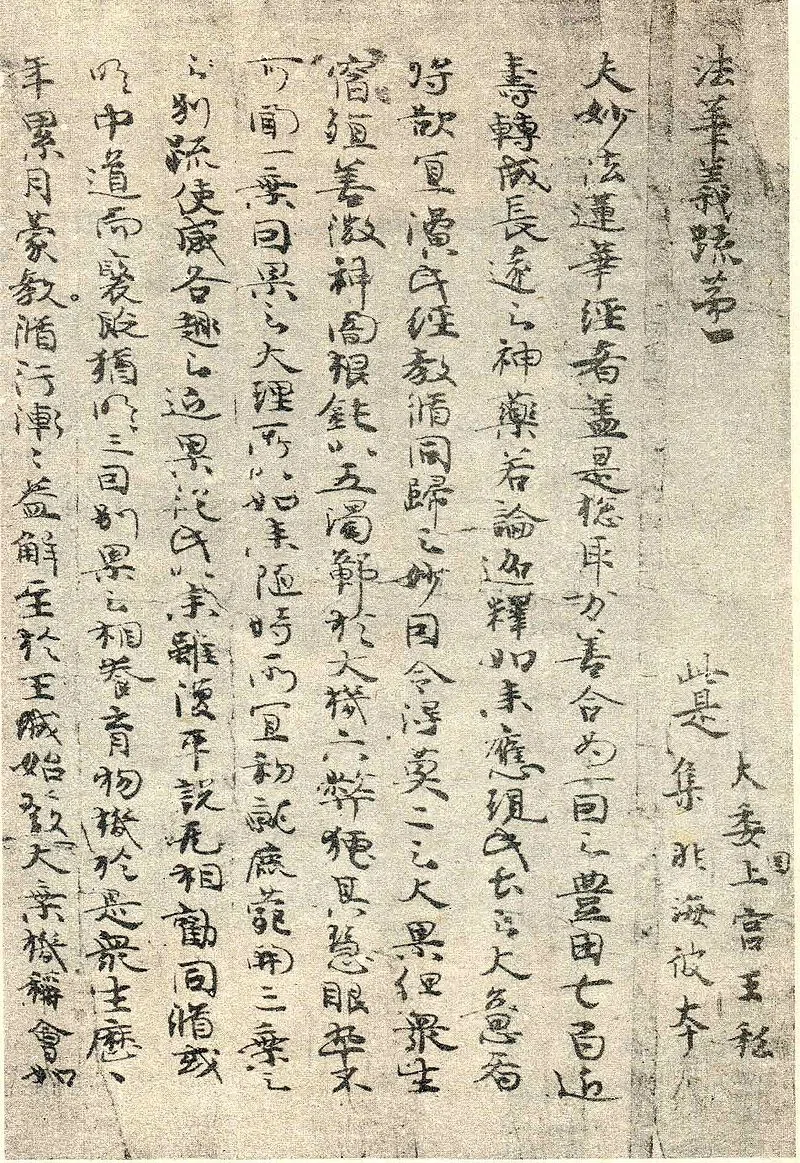 法華義疏第一
此是
大委国上宮王私
集非海彼本
夫妙法蓮華経者蓋是惣取万善合為一因之豊田七百近
壽轉成長遠之神藥若論迦釋如来應現此土之大意者
将欲宜演此経教脩同歸之妙因令得莫二之大果但衆生
宿殖善微神闇根鈍以五濁鄣於大機六弊掩其慧眼卒不
可聞一乗因果之大理所以如来随時所宜初就鹿苑開三乗之
之別疏使感各趣之近果従此以来雖復平説无相勧同脩或
明中道而褒貶猶明三因別果之相養育物機於是衆生歴、
年累月蒙教脩行漸〻益解至於王城始發大乗機稱會如